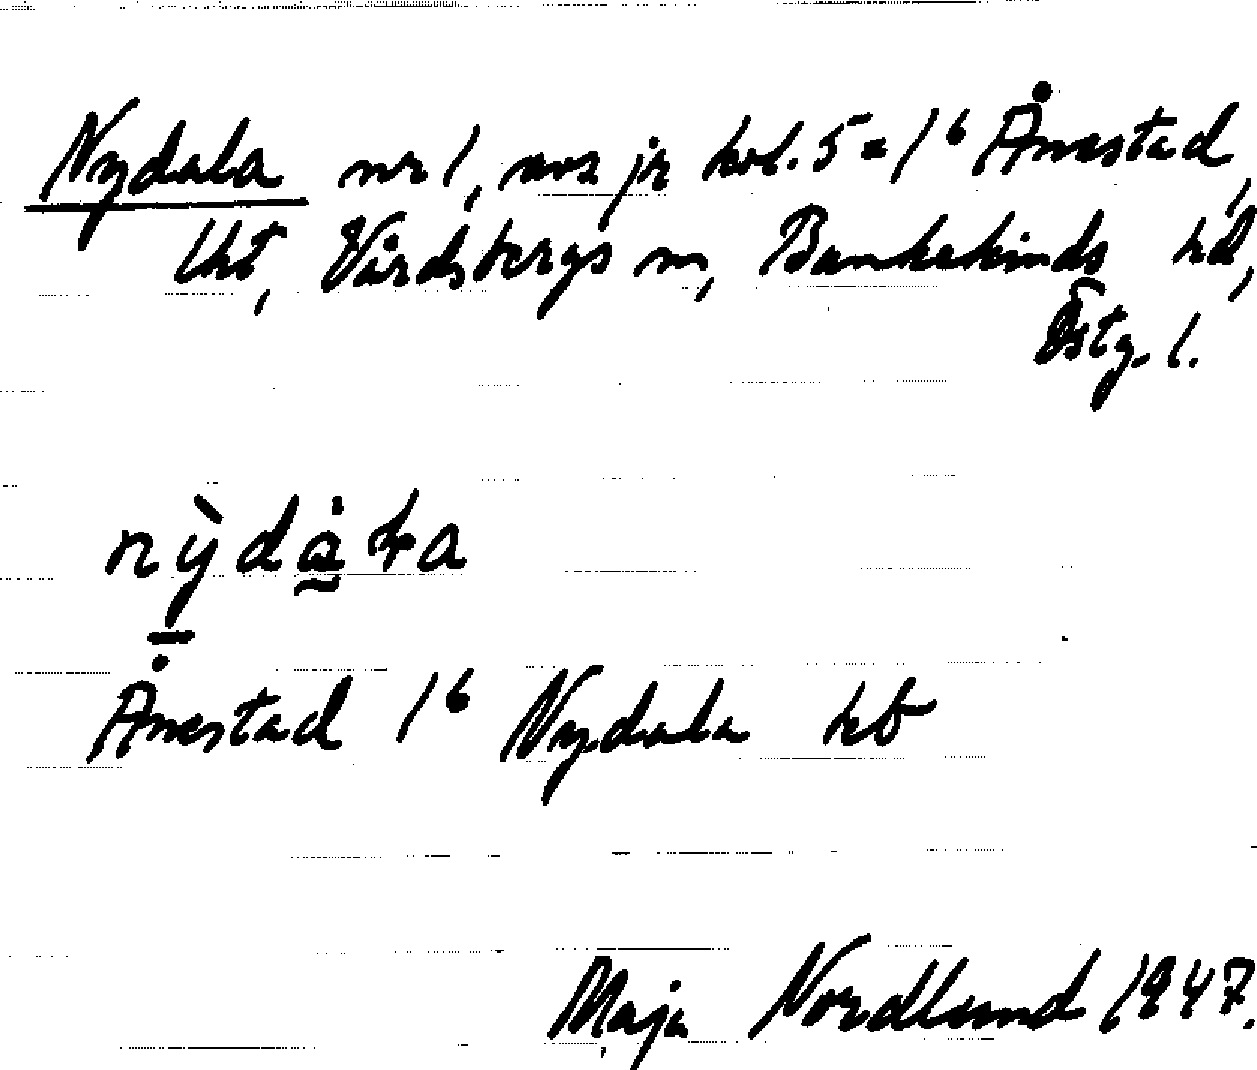 Nydala nr 1, avs jr kol. 5 = 1⁶ Ånestad,
Lht, Vårdsbergs sn, Bankekinds hd,
Östg. l.
nỳdåla
Ånestad 1⁶ Nydala hb
Maja Nordlund 1947.